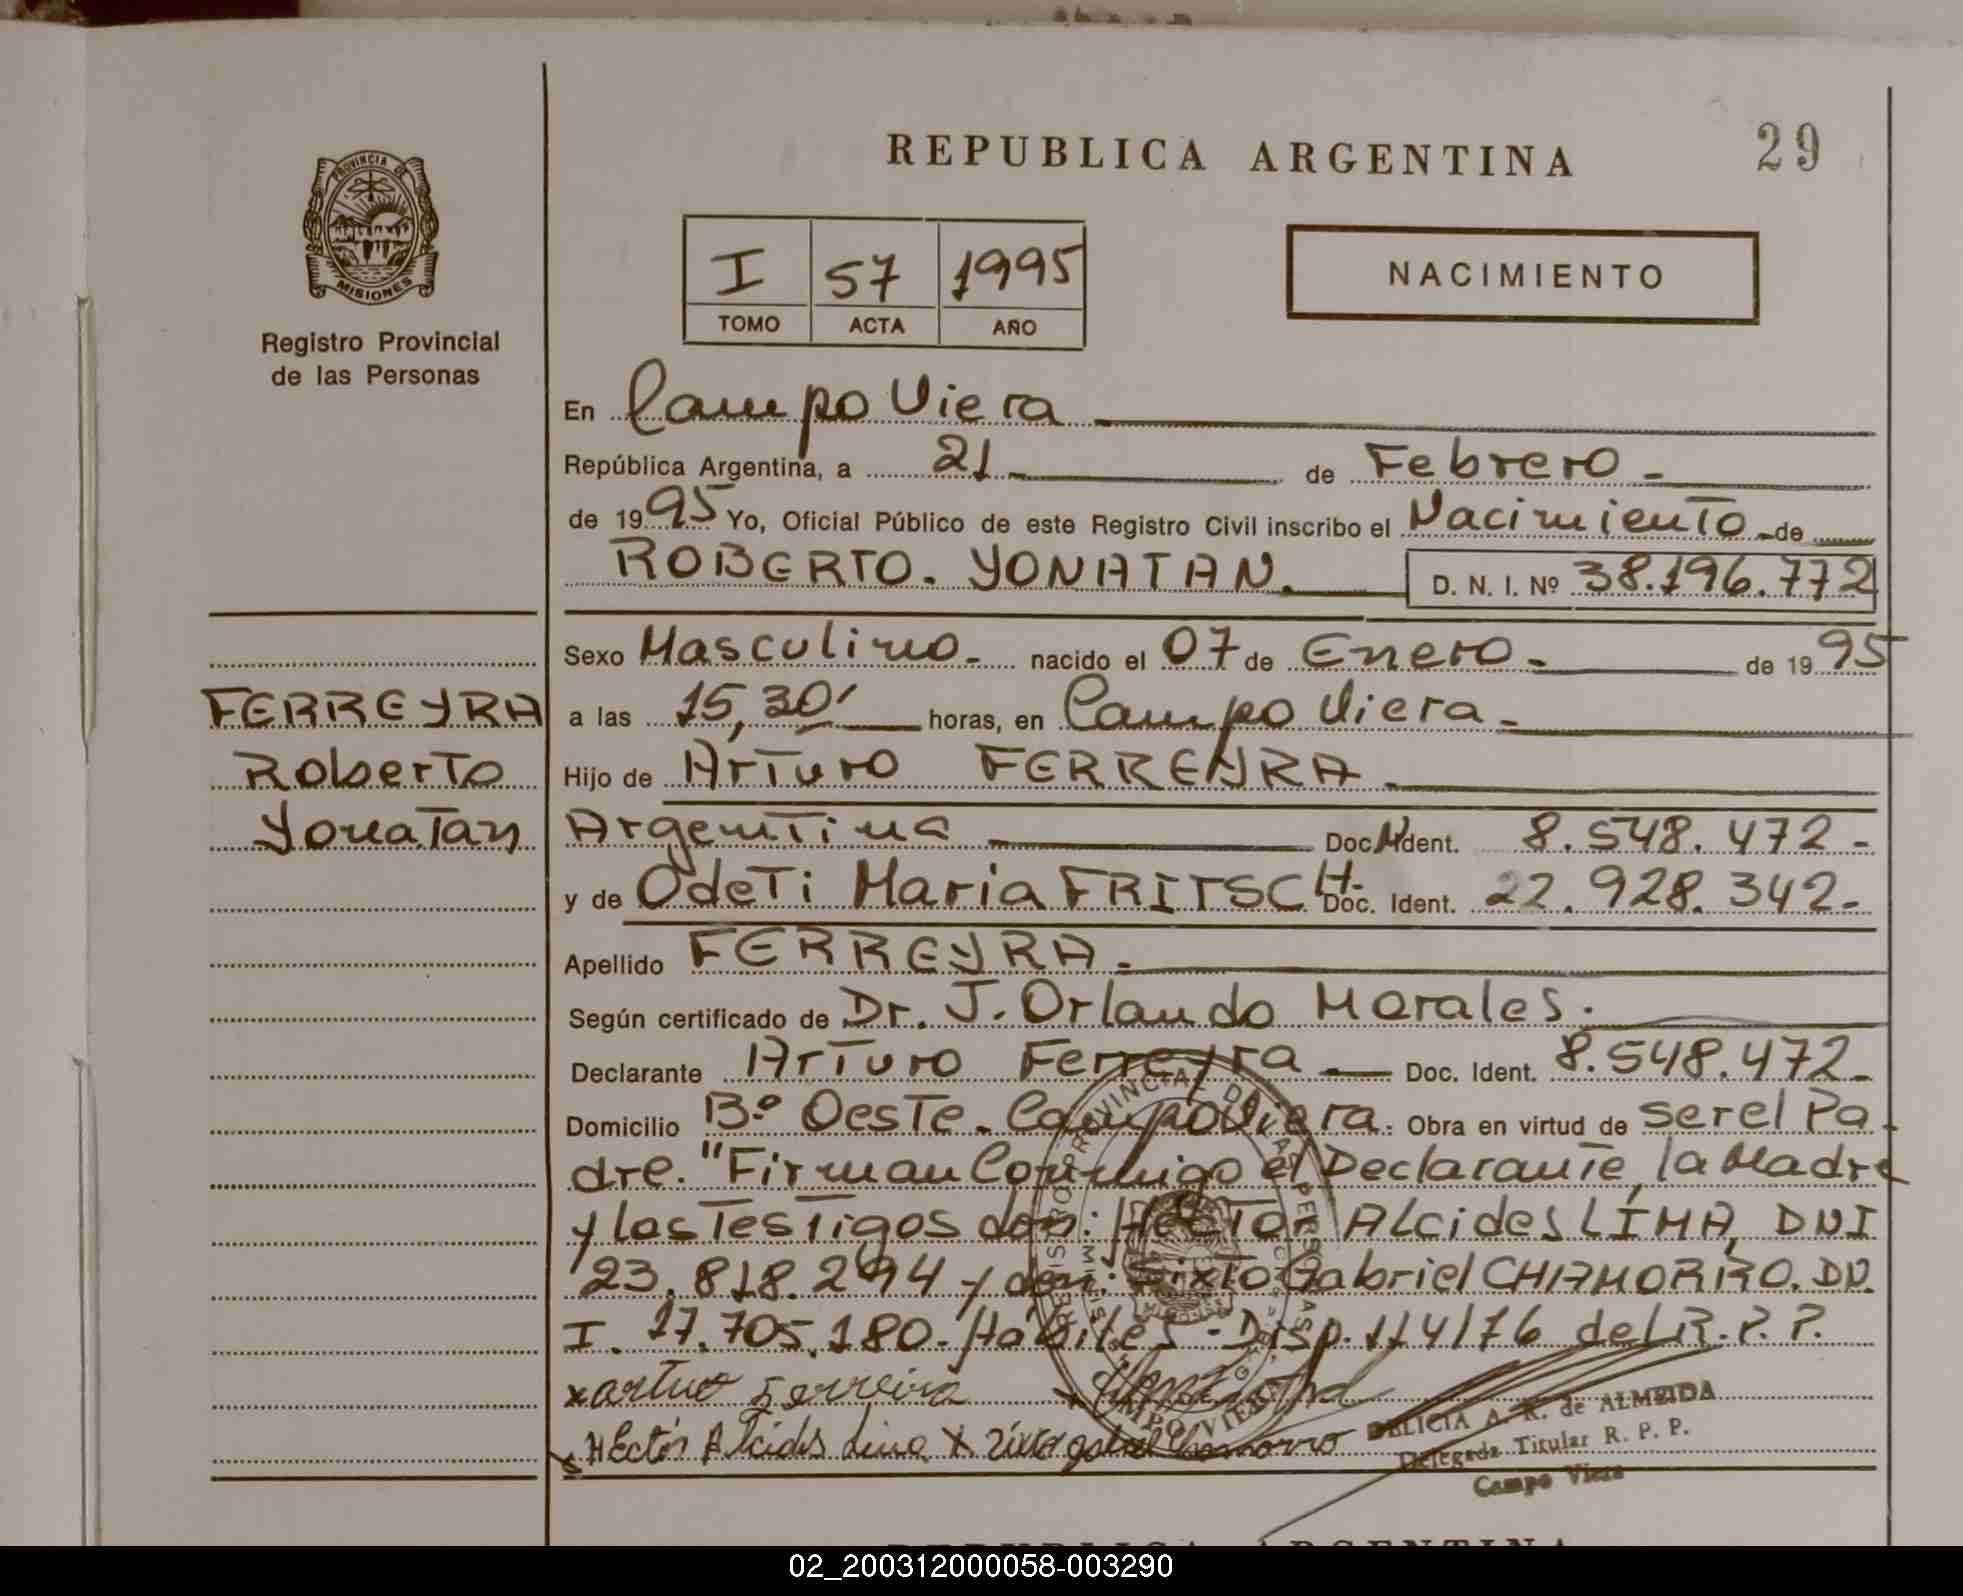 REPUBLICA ARGENTINA
29
PROVINCIA DE
MISIONES
Registro Provincial
de las Personas
I 57 1995
TOMO ACTA AÑO
NACIMIENTO
En Campo Viera
República Argentina, a 21 de Febrero
de 1995 Yo, Oficial Público de este Registro Civil inscribo el Nacimiento de
ROBERTO. YONATAN. D. N. I. Nº 38.196.772
Sexo Masculino nacido el 07 de Enero de 1995
FERREYRA
Roberto
Yonatan
a las 15,30' horas, en Campo Viera
Hijo de Arturo FERREYRA
Argentina Doc. Ident. 8.548.472-
y de Odeti Maria FRITSCH. Doc. Ident. 22.928.342-
Apellido FERREYRA.
Según certificado de Dr. J. Orlando Morales.
Declarante Arturo Ferreyra Doc. Ident. 8.548.472-
Domicilio Bº Oeste. Campo Viera. Obra en virtud de ser el Pa
dre. "Firman Conmigo el Declarante, la Madre
y los Testigos don: Héctor Alcides LIMA, DNI
23.818.294 y don: Sixto Gabriel CHAMORRO. DN.
I. 17.705.180. Hábiles - Disp. 114/76 del R.P.P.
x artuo Ferreira x
x Héctor Alcides Lima x
DELICIA A. R. de ALMEIDA
Delegada Titular R. P. P.
Campo Viera
REPUBLICA ARGENTINA
02_200312000058-003290